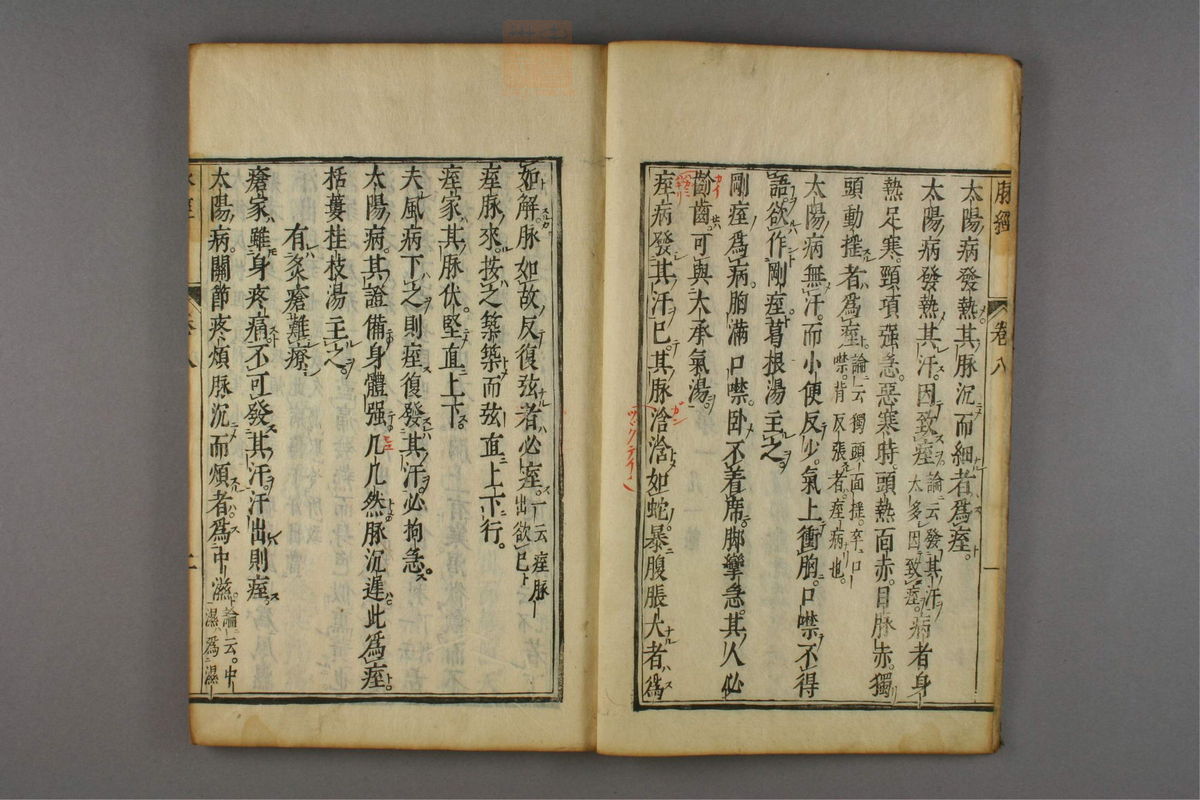 脉經
卷八
一
太陽病發熱其脉沉而細者爲痓。
太陽病發熱其汗。因致痓論云發其汗太多因致痓。病者身
熱足寒。頸項强急。惡寒時。頭熱面赤。目脉赤。獨
頭動揺者爲痓。論云獨頭面揺。卒口噤。背反張者。痓病也。
太陽病無汗。而小便反少。氣上衝胸。口噤不得
語。欲作剛痓。葛根湯主之
剛痓爲病。胸滿口噤。卧不着席。脚攣急。其人必
齘齒。可與大承氣湯。
痓病發其汗已。其脉浛浛如蛇暴腹脹大者爲
如解。脉如故反復弦者必痓。一云痓脉出欲已
痓脉來。按之築築而弦直上下行。
痓家其脉伏堅直上下。
夫風病下之則痓復發其汗。必拘急。
太陽病。其證備身體强几几然脉沉遲此爲痓。
栝蔞桂枝湯主之。
有灸瘡難療
瘡家雖身疼痛不可發其汗。汗出則痓。
太陽病。關節疼煩脉沉而煩者爲中濕。論云。中濕爲濕